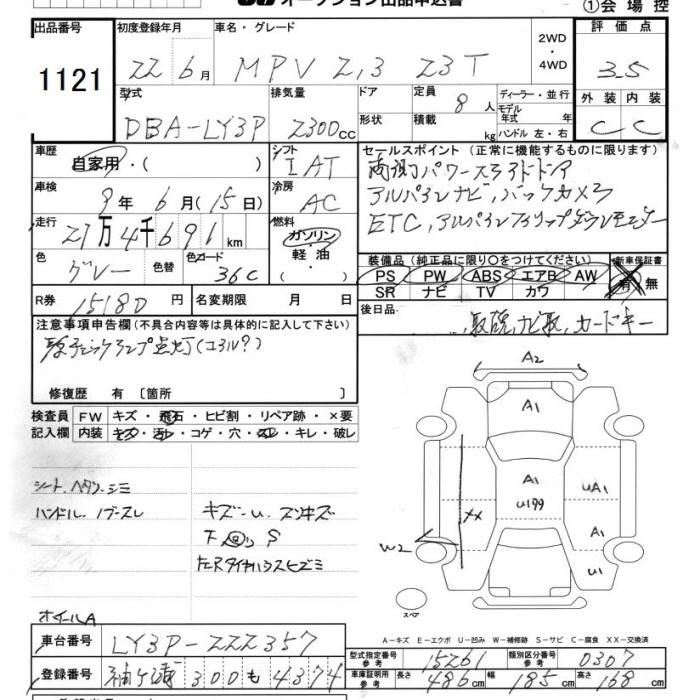 オークション出品申込書
①会場控
出品番号 初度登録年月 車名・グレード 2WD・4WD 評価点
1121 22 6月 MPV 2,3 23T 3.5
型式 排気量 ドア 定員 8人 ディーラー・並行 外装 内装
モデル年式 年
DBA-LY3P 2300cc 形状 積載 kg ハンドル 左・右 C C
車歴 シフト セールスポイント (正常に機能するものに限ります)
自家用・( ) IAT 両側パワースライドドア
車検 冷房 アルパインナビ,バックカメラ
9年 6月(15日) AC ETC,アルパインフリップダウンモニター
走行 燃料
27万4千691km ガソリン・軽油・( )
装備品(純正品に限り○をつけてください) 新車保証書
色 色替 色コード PS PW ABS エアB AW 有 無
グレー 36C SR ナビ TV カワ
R券 15180円 名変期限 月 日 後日品
,取説,ナビ取,カードキー
注意事項申告欄(不具合内容等は具体的に記入して下さい)
エンジンチェックランプ点灯(コイル?)
修復歴 有〔箇所 〕
検査員 FW キズ・飛石・ヒビ割・リペア跡・×要
記入欄 内装 キズ・汚れ・コゲ・穴・スレ・キレ・破レ
A2
A1
シート、ヘタリ、シミ
A1 UA1
ハンドル、ノブスレ キズ・U、スリキズ
U199
XX A1
下回り S
W2
左Rタイヤハウスヒズミ
U1
スペア
ホイールA
A-キズ E-エクボ U-凹み W-補修跡 S-サビ C-腐食 XX-交換済
車台番号 LY3P-222357
型式指定番号 参考 15261 類別区分番号 参考 0307
登録番号 袖ヶ浦 300 も 4374
車庫証明用 参考 長さ 486cm 幅 185cm 高さ 168cm